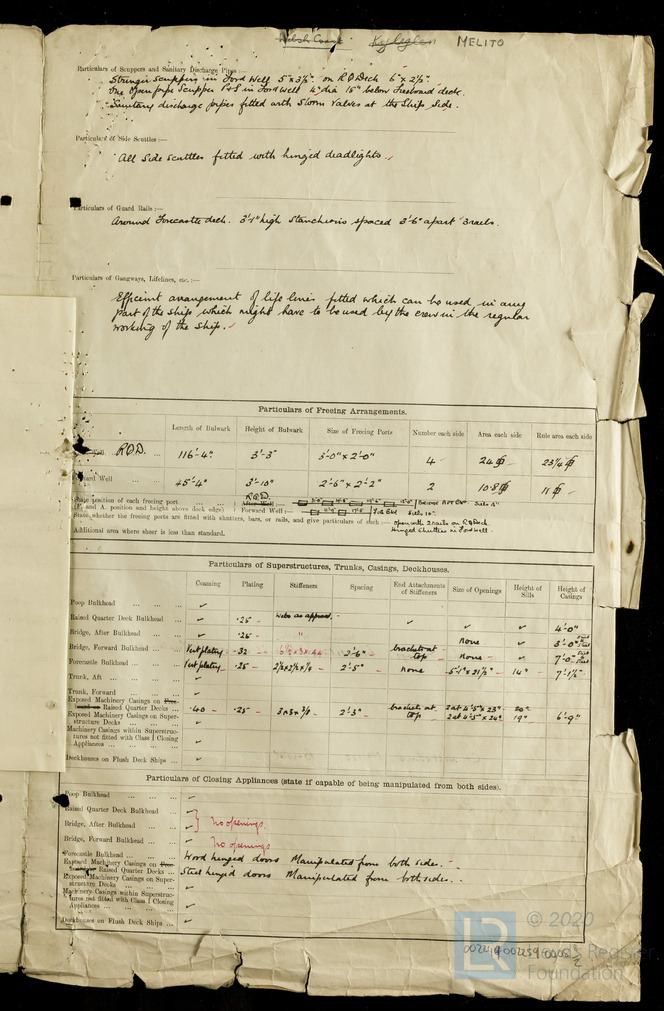 Welsh Coast Kyleglen MELITO
Particulars of Scuppers and Sanitary Discharge Pipes :—
Stringer scuppers in Ford Well 5"x3½" on RQDeck 6"x2½".
One open pipe Scupper P&S in Ford Well 4" dia 15" below Freeboard deck.
Sanitary discharge pipes fitted with Storm Valves at the Ships Side.
Particulars of Side Scuttles :—
All side scuttles fitted with hinged deadlights.
Particulars of Guard Rails :—
Around Forecastle deck. 3'-1" high Stanchions spaced 3'-6" apart 3 rails.
Particulars of Gangways, Lifelines, etc. :—
Efficient arrangement of life lines fitted which can be used in any
part of the ships which might have to be used by the crew in the regular
working of the ship.
Particulars of Freeing Arrangements.
Length of Bulwark Height of Bulwark Size of Freeing Ports Number each side Area each side Rule area each side
RQD. 116'-4" 3'-3" 3'-0" x 2'-0" 4 24 23¼
Well 45'-4" 3'-10" 2'-6" x 2'-2" 2 10.8 11
State position of each freeing port RQD.
(F. and A. position and height above deck edge) Forward Well :—
State whether the freeing ports are fitted with shutters, bars, or rails, and give particulars of such :— open with 2 rails on RQDeck
Additional area where sheer is less than standard. Hinged Shutters in Ford Well.
Particulars of Superstructures, Trunks, Casings, Deckhouses.
Coaming Plating Stiffeners Spacing End Attachments of Stiffeners Size of Openings Height of Sills Height of Casings
Poop Bulkhead
Raised Quarter Deck Bulkhead .25 Webs as approved. 4'-0"
Bridge, After Bulkhead .26 " None 3'-0"
Bridge, Forward Bulkhead Vert plating .32 2'-6" brackets at top None 7'-0"
Forecastle Bulkhead Vert plating .25 2'-5" none 5'-1" x 21½" 14" 7'-1½"
Trunk, Aft
Trunk, Forward
Exposed Machinery Casings on Raised Quarter Decks .40 .25 3x3x 2'-3" brackets at top 2 at 4'-5" x 23" 20"
Exposed Machinery Casings on Superstructure Decks 2 at 4'-5" x 24" 19" 6'-9"
Machinery Casings within Superstructures not fitted with Class 1 Closing Appliances
Deckhouses on Flush Deck Ships
Particulars of Closing Appliances (state if capable of being manipulated from both sides).
Poop Bulkhead
Raised Quarter Deck Bulkhead
Bridge, After Bulkhead No openings
Bridge, Forward Bulkhead No openings
Forecastle Bulkhead Wood hinged doors Manipulated from both sides.
Exposed Machinery Casings on Raised Quarter Decks Steel hinged doors Manipulated from both sides.
Exposed Machinery Casings on Superstructure Decks
Machinery Casings within Superstructures not fitted with Class 1 Closing Appliances
Deckhouses on Flush Deck Ships
© 2020
Lloyd's Register
Foundation